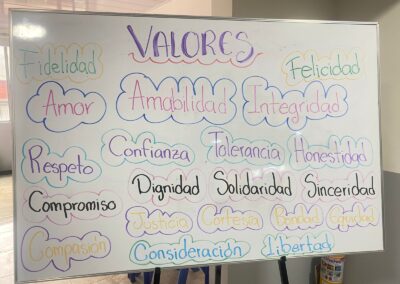 VALORES
Fidelidad
Felicidad
Amor Amabilidad Integridad
Respeto Confianza Tolerancia Honestidad
Compromiso Dignidad Solidaridad Sinceridad
Justicia Cortesía Bondad Equidad
Compasión Consideración Libertad